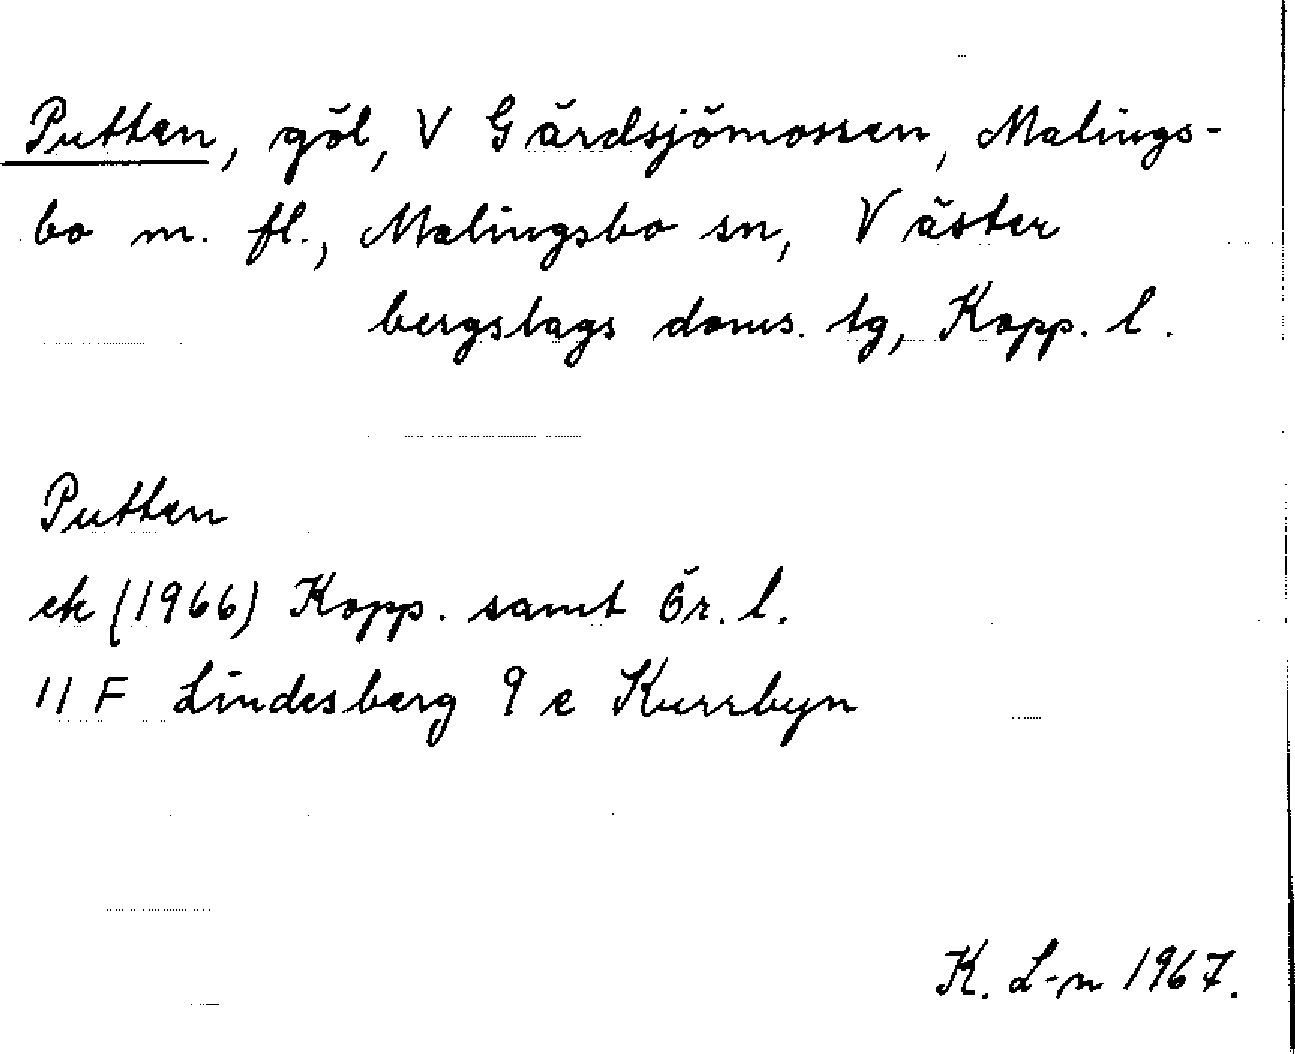 Putten, göl, V Gärdsjömossen, Malings-
bo m. fl., Malingsbo sn, Väster
bergslags doms. tg, Kopp. l.
Putten
ek (1966) Kopp. samt Ör. l.
11 F Lindesberg 9 e Kurrbyn
K. L-n 1967.